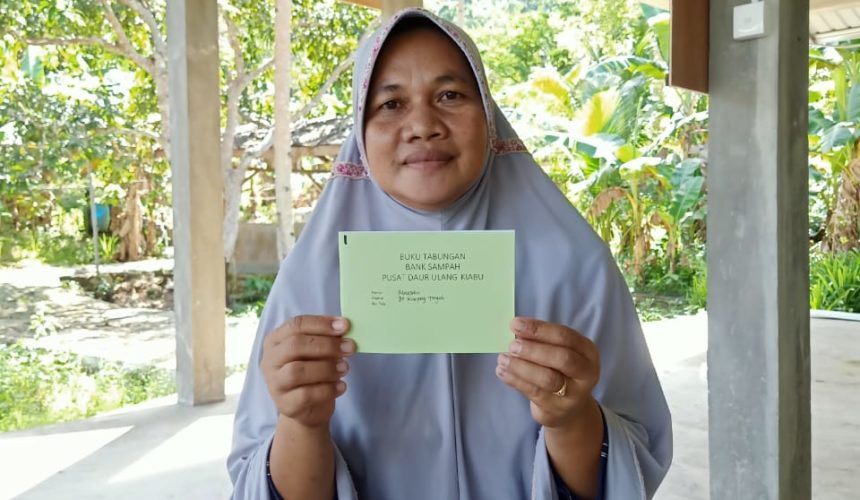 BUKU TABUNGAN
BANK SAMPAH
PUSAT DAUR ULANG KIABU
Nama
Alamat
No. Telp